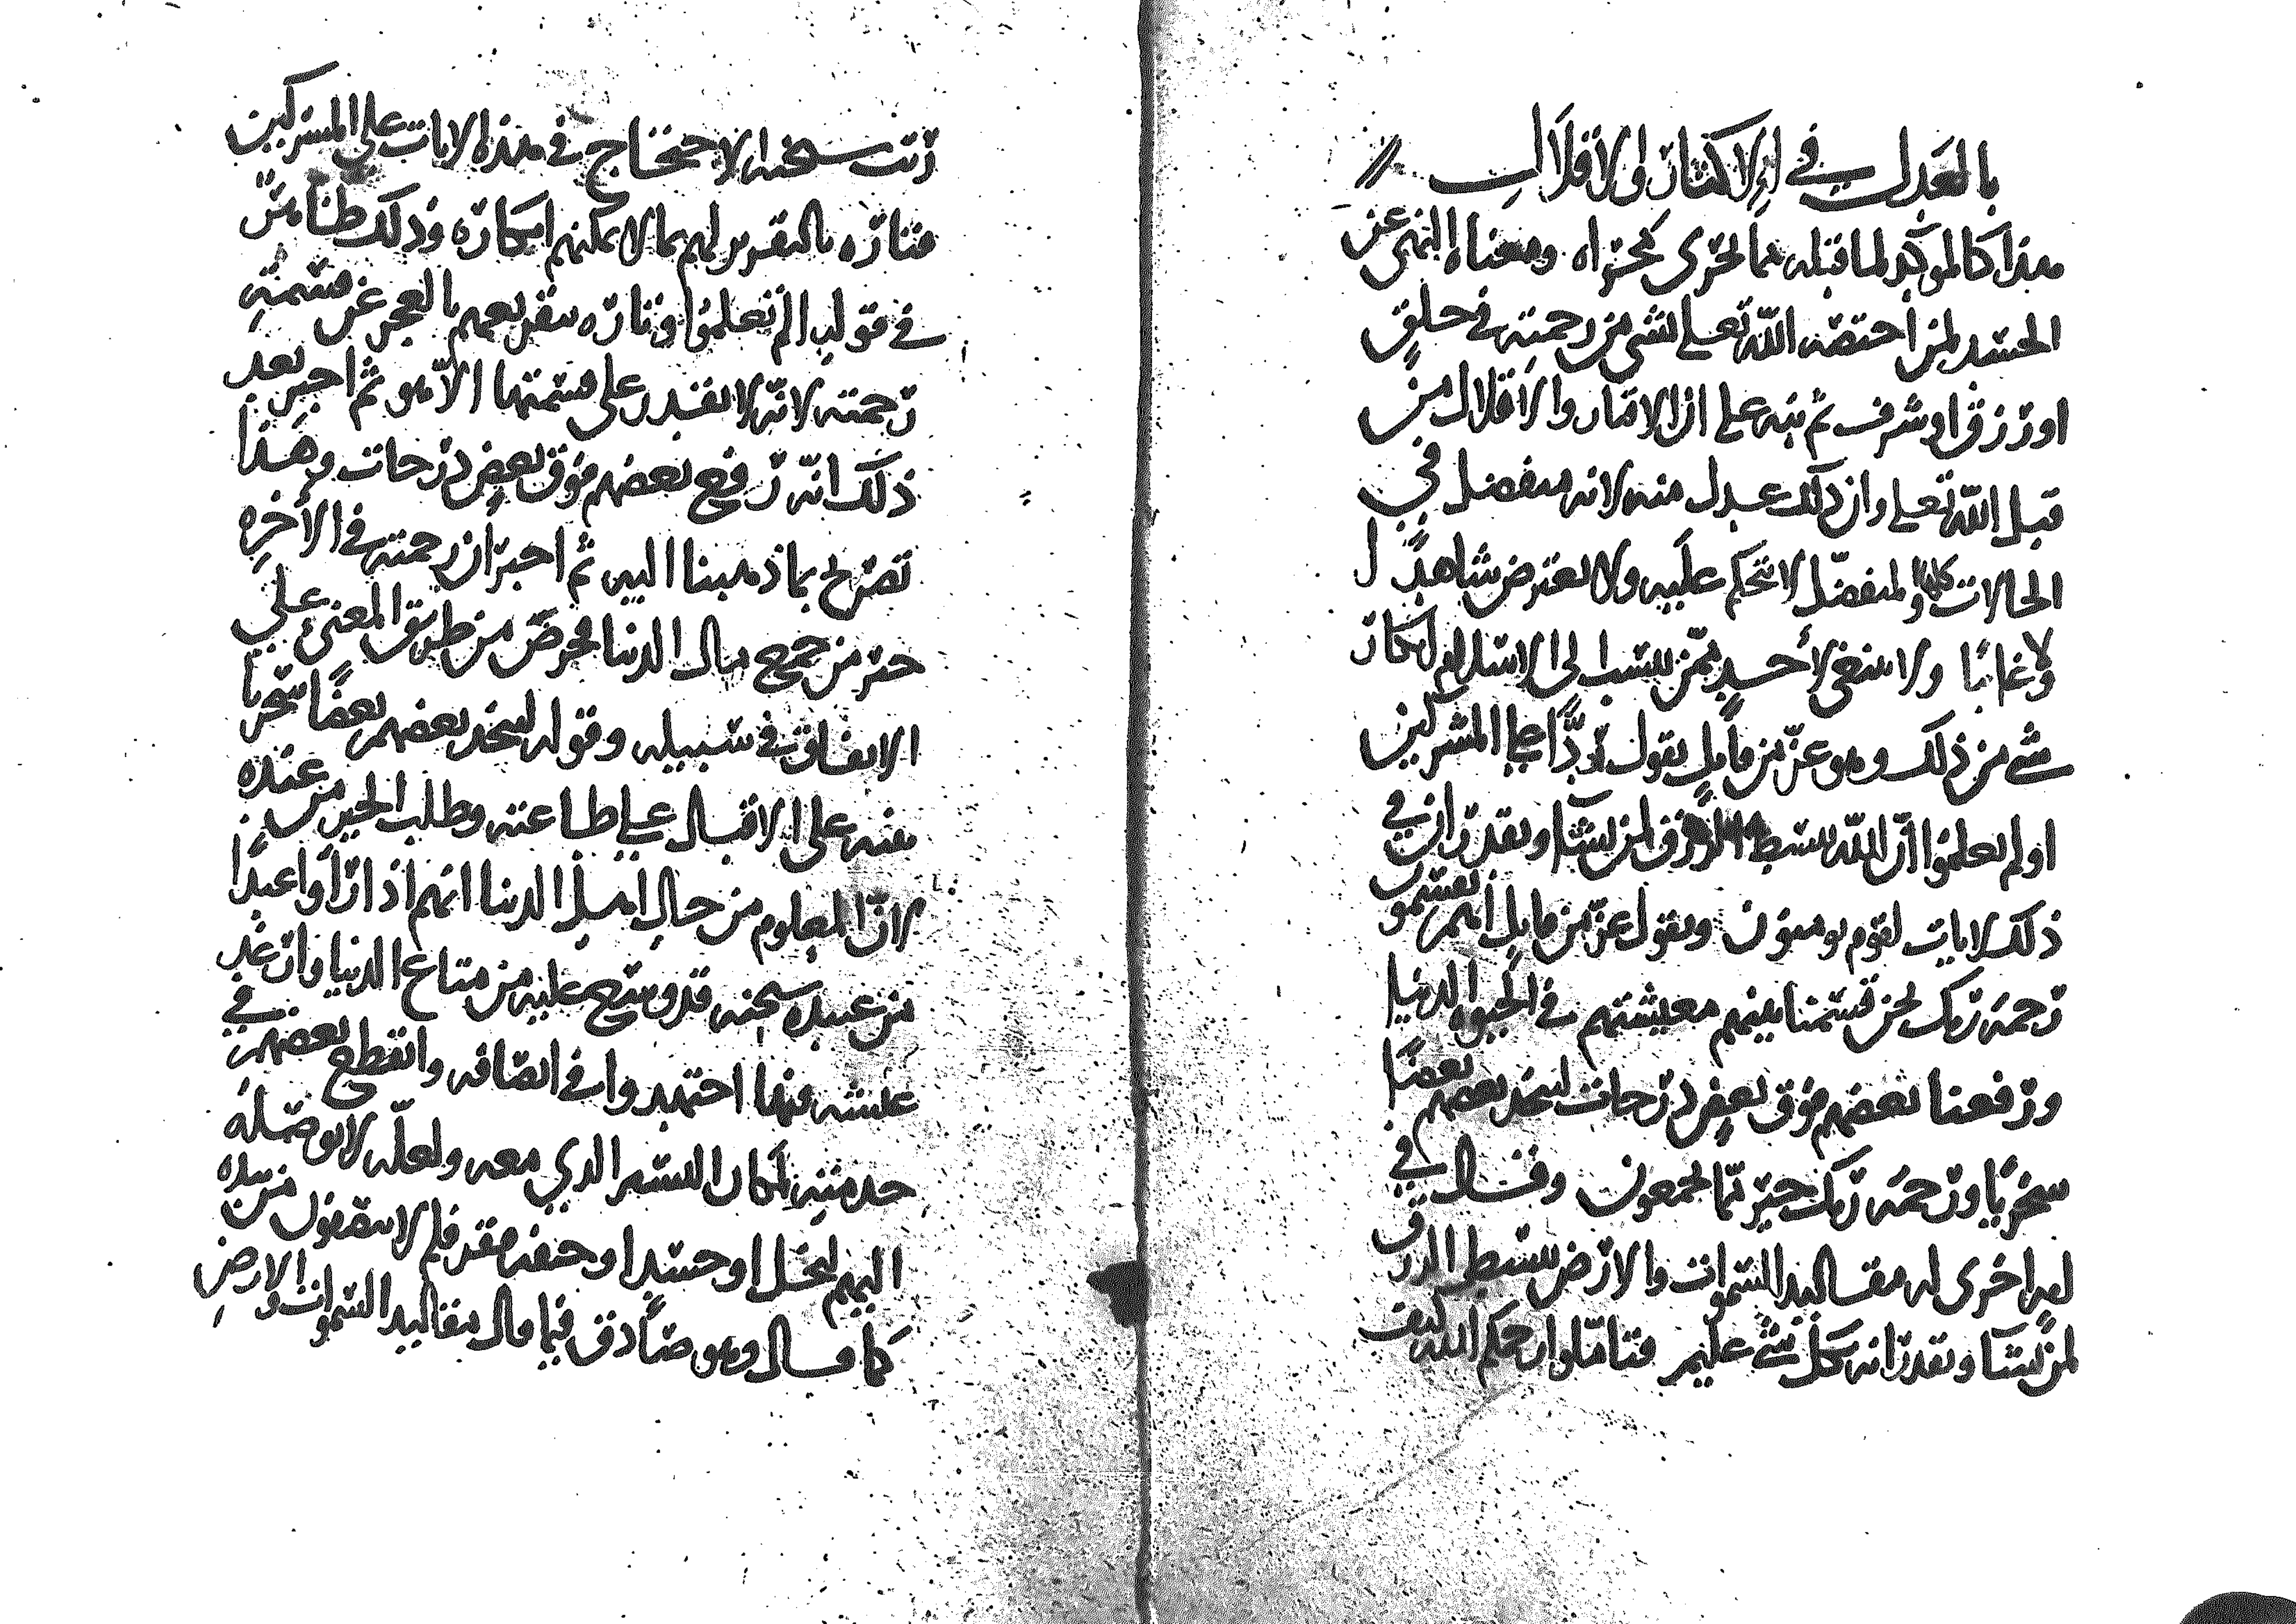 بالعدل في الاكثار والاقلال
هذا كالموكد لما قبله مما يجري مجراه ومعناه النهي عن
الحسد لمن اختصه الله تعلى بشي من رحمته في خلق
او رزق او شرف ثم نبه على ان الاكثار والاقلال من
قبل الله تعلى وان ذلك عدل منه لانه متفضل في
الحالات كلها والمتفضل لا يتحكم عليه ولا يعترض شاهدا
ولا غائبا ولا ينبغي لاحد ممن ينتسب الى الاسلام انكار
شي من ذلك وهو عز من قايل يقول ردا على المشركين
اولم يعلموا ان الله يبسط الرزق لمن يشا ويقدر ان في
ذلك لايات لقوم يومنون ويقول عز من قايل اهم يقسمون
رحمة ربك نحن قسمنا بينهم معيشتهم في الحيوه الدنيا
ورفعنا بعضهم فوق بعض درجات ليتخذ بعضهم بعضا
سخريا ورحمة ربك خير مما يجمعون وقال في
اخرى له مقاليد السموات والارض يبسط الرزق
لمن يشا ويقدر انه بكل شي عليم فتاملوا رحمكم الله كيف
رتب سبحنه الاحتجاج في هذه الايات على المشركين
فتاره بالتقرير لهم بما لا يمكنهم انكاره وذلك
في قوله الم تعلموا وتاره بتقريعهم بالعجز عن قسمة
رحمته لانه لا يقدر على قسمتها الا هو ثم اخبر بعد
ذلك انه رفع بعضهم فوق بعض درجات وهذا
تصريح بما ذهبنا اليه ثم اخبر ان رحمته في الاخره
خير من جمع مال الدنيا فحرض من طريق المعنى على
الانفاق في سبيله وقوله ليتخذ بعضهم بعضا سخريا
نبه على الاقبال على طاعته وطلب الخير من عنده
لان المعلوم من حال اهل الدنيا انهم اذا راوا عبدا
من عبيده سبحنه قد وسع عليه من متاع الدنيا وارغد
عيشه فيها اجتهدوا في انصافه وانقطع بعضهم في
خدمته لمكان اليسير الذي معه ولعله لا يوصله
اليهم لبخل او حسد او خيفه فقر فلم لا من بيده
كما قال وهو صادق فيما قال مقاليد السموات والارض